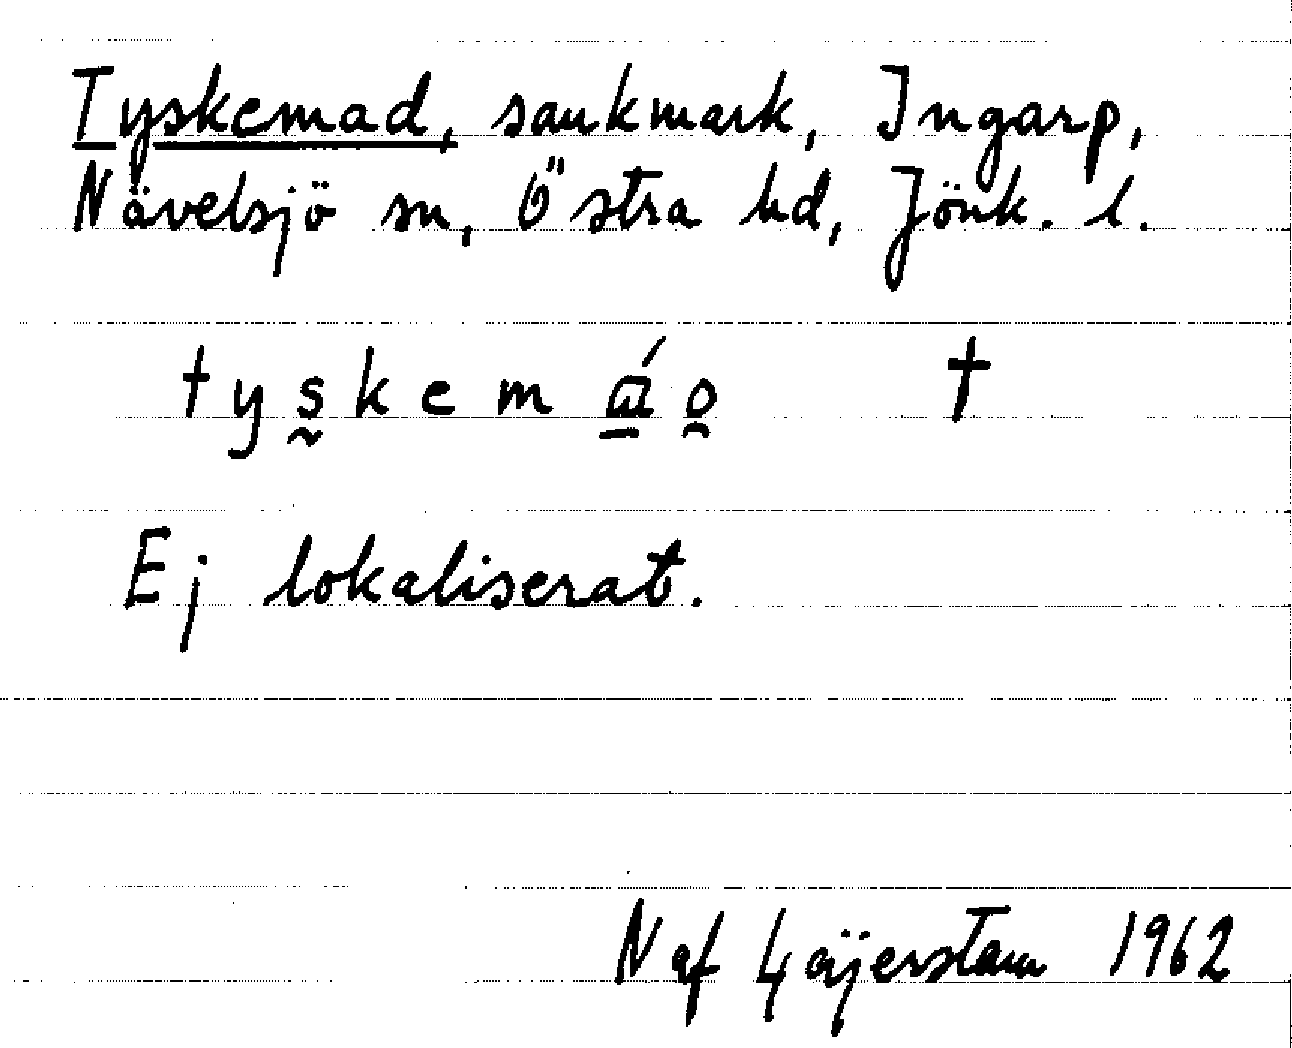 Tyskemad, sankmark, Ingarp,
Nävelsjö sn, Östra hd, Jönk. l.
tyskemáo †
Ej lokaliserat.
N af Gäijerstam 1962